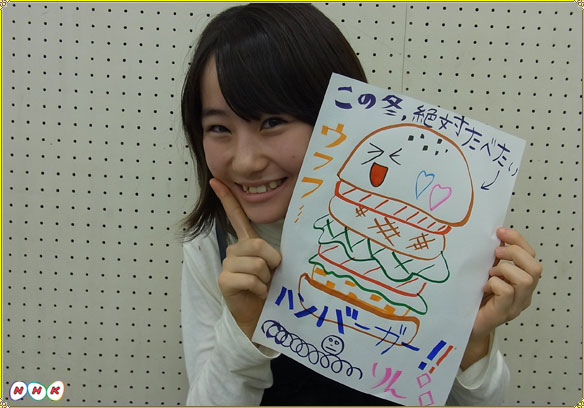 この冬、絶対たべたい
ウフフ…
ハンバーガー!!
りん
NHK